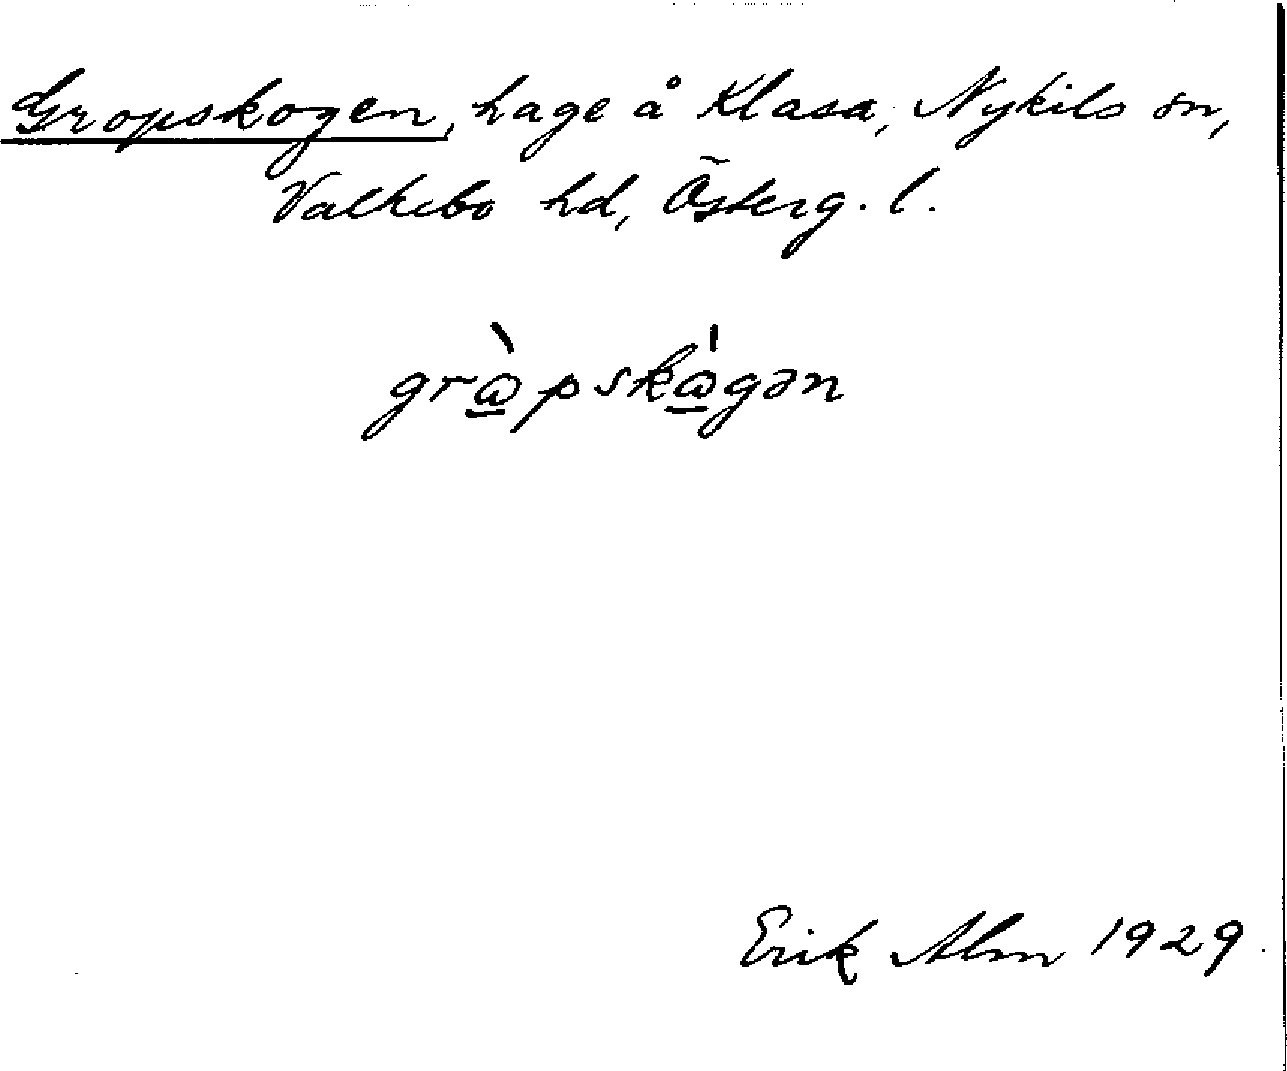 Gropskogen, hage å Klasa, Nykils sn,
Valkebo hd, Österg. l.
grò̲pskó̲gən
Erik Alm 1929.